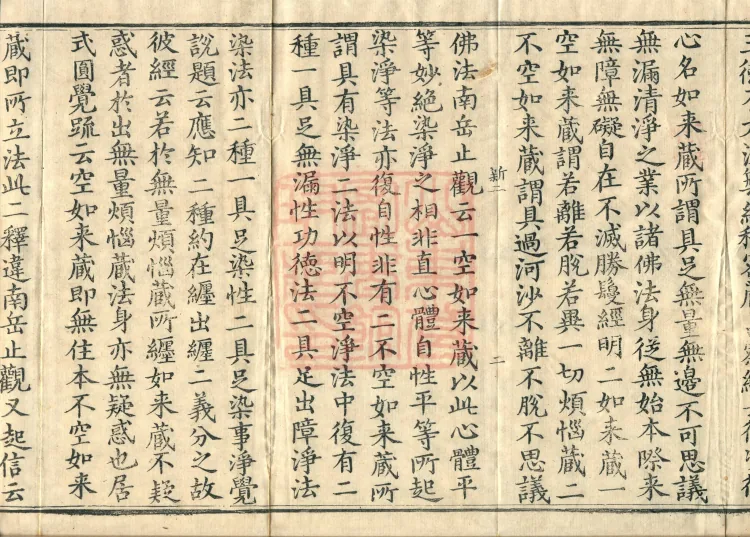 心名如来蔵所謂具足無量無邊不可思議
無漏清淨之業以諸佛法身從無始本際来
無障無礙自在不滅勝鬘經明二如来蔵一
空如来蔵謂若離若脫若異一切煩惱蔵二
不空如来蔵謂具過河沙不離不脫不思議
新二
二
佛法南岳止觀云一空如来蔵以此心體平
等妙絶染淨之相非直心體自性平等所起
染淨等法亦復自性非有二不空如来蔵所
謂具有染淨二法以明不空淨法中復有二
種一具足無漏性功德法二具足出障淨法
染法亦二種一具足染性二具足染事淨覺
說題云應知二種約在纏出纏二義分之故
彼經云若於無量煩惱蔵所纏如来蔵不疑
惑者於出無量煩惱蔵法身亦無疑惑也居
式圓覺䟽云空如来蔵即無住本不空如来
蔵即所立法此二釋違南岳止觀又起信云